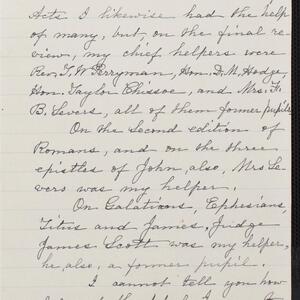 Acts I likewise had the help
of many, but, on the final re-
view, my chief helpers were
Rev. T. W. Perryman, Hon. D. M. Hodge,
Hon. Taylor Chissoe, and Mrs. H.
B. Severs, all of them former pupils.
On the second edition of
Romans, and on the three
epistles of John, also, Mrs Se-
vers was my helper.
On Galatians, Ephesians,
Titus and James, Judge
James Scott was my helper,
he also, a former pupil.
I cannot tell you how